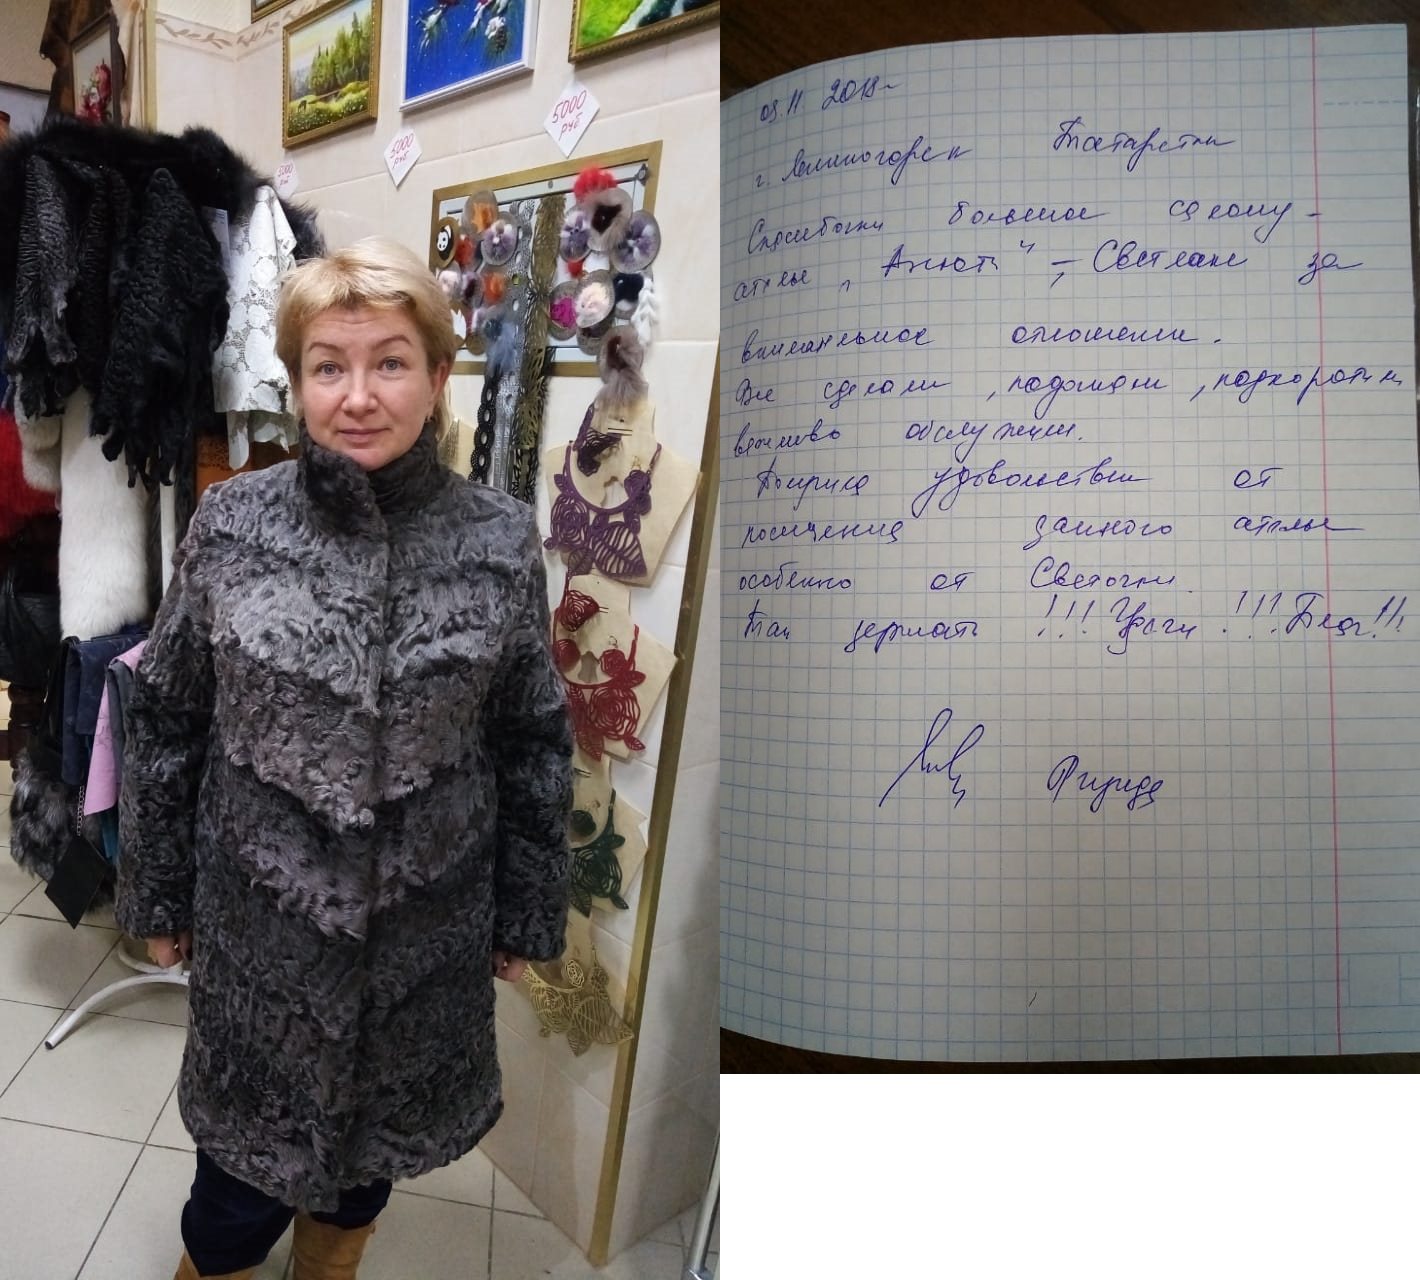 5000
руб
5000
руб
5000
руб
09.11.2018г
г. Лениногорск Татарстан
Спасибочки большое салону-
ателье „Анюта" – Светлане за
внимательное отношение.
Все сделали, подошили, подкоротили
вежливо обслужили.
удовольствие от
посещения данного ателье
особенно от Светочки.
Так держать!!! Удачи!!! Благ!!!